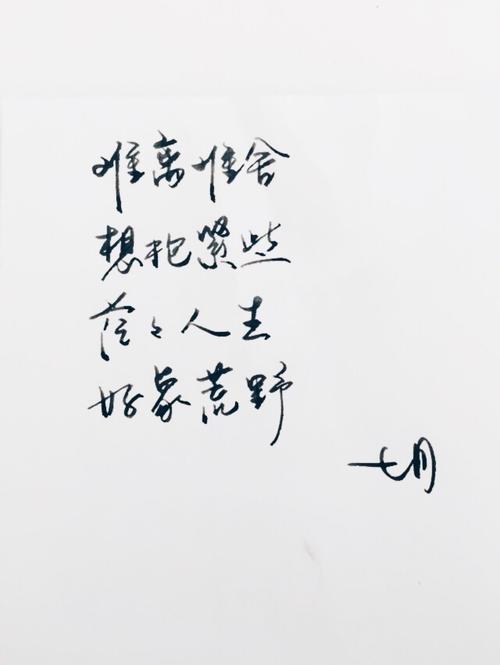 难离难舍
想抱紧些
茫々人生
好象荒野
七月